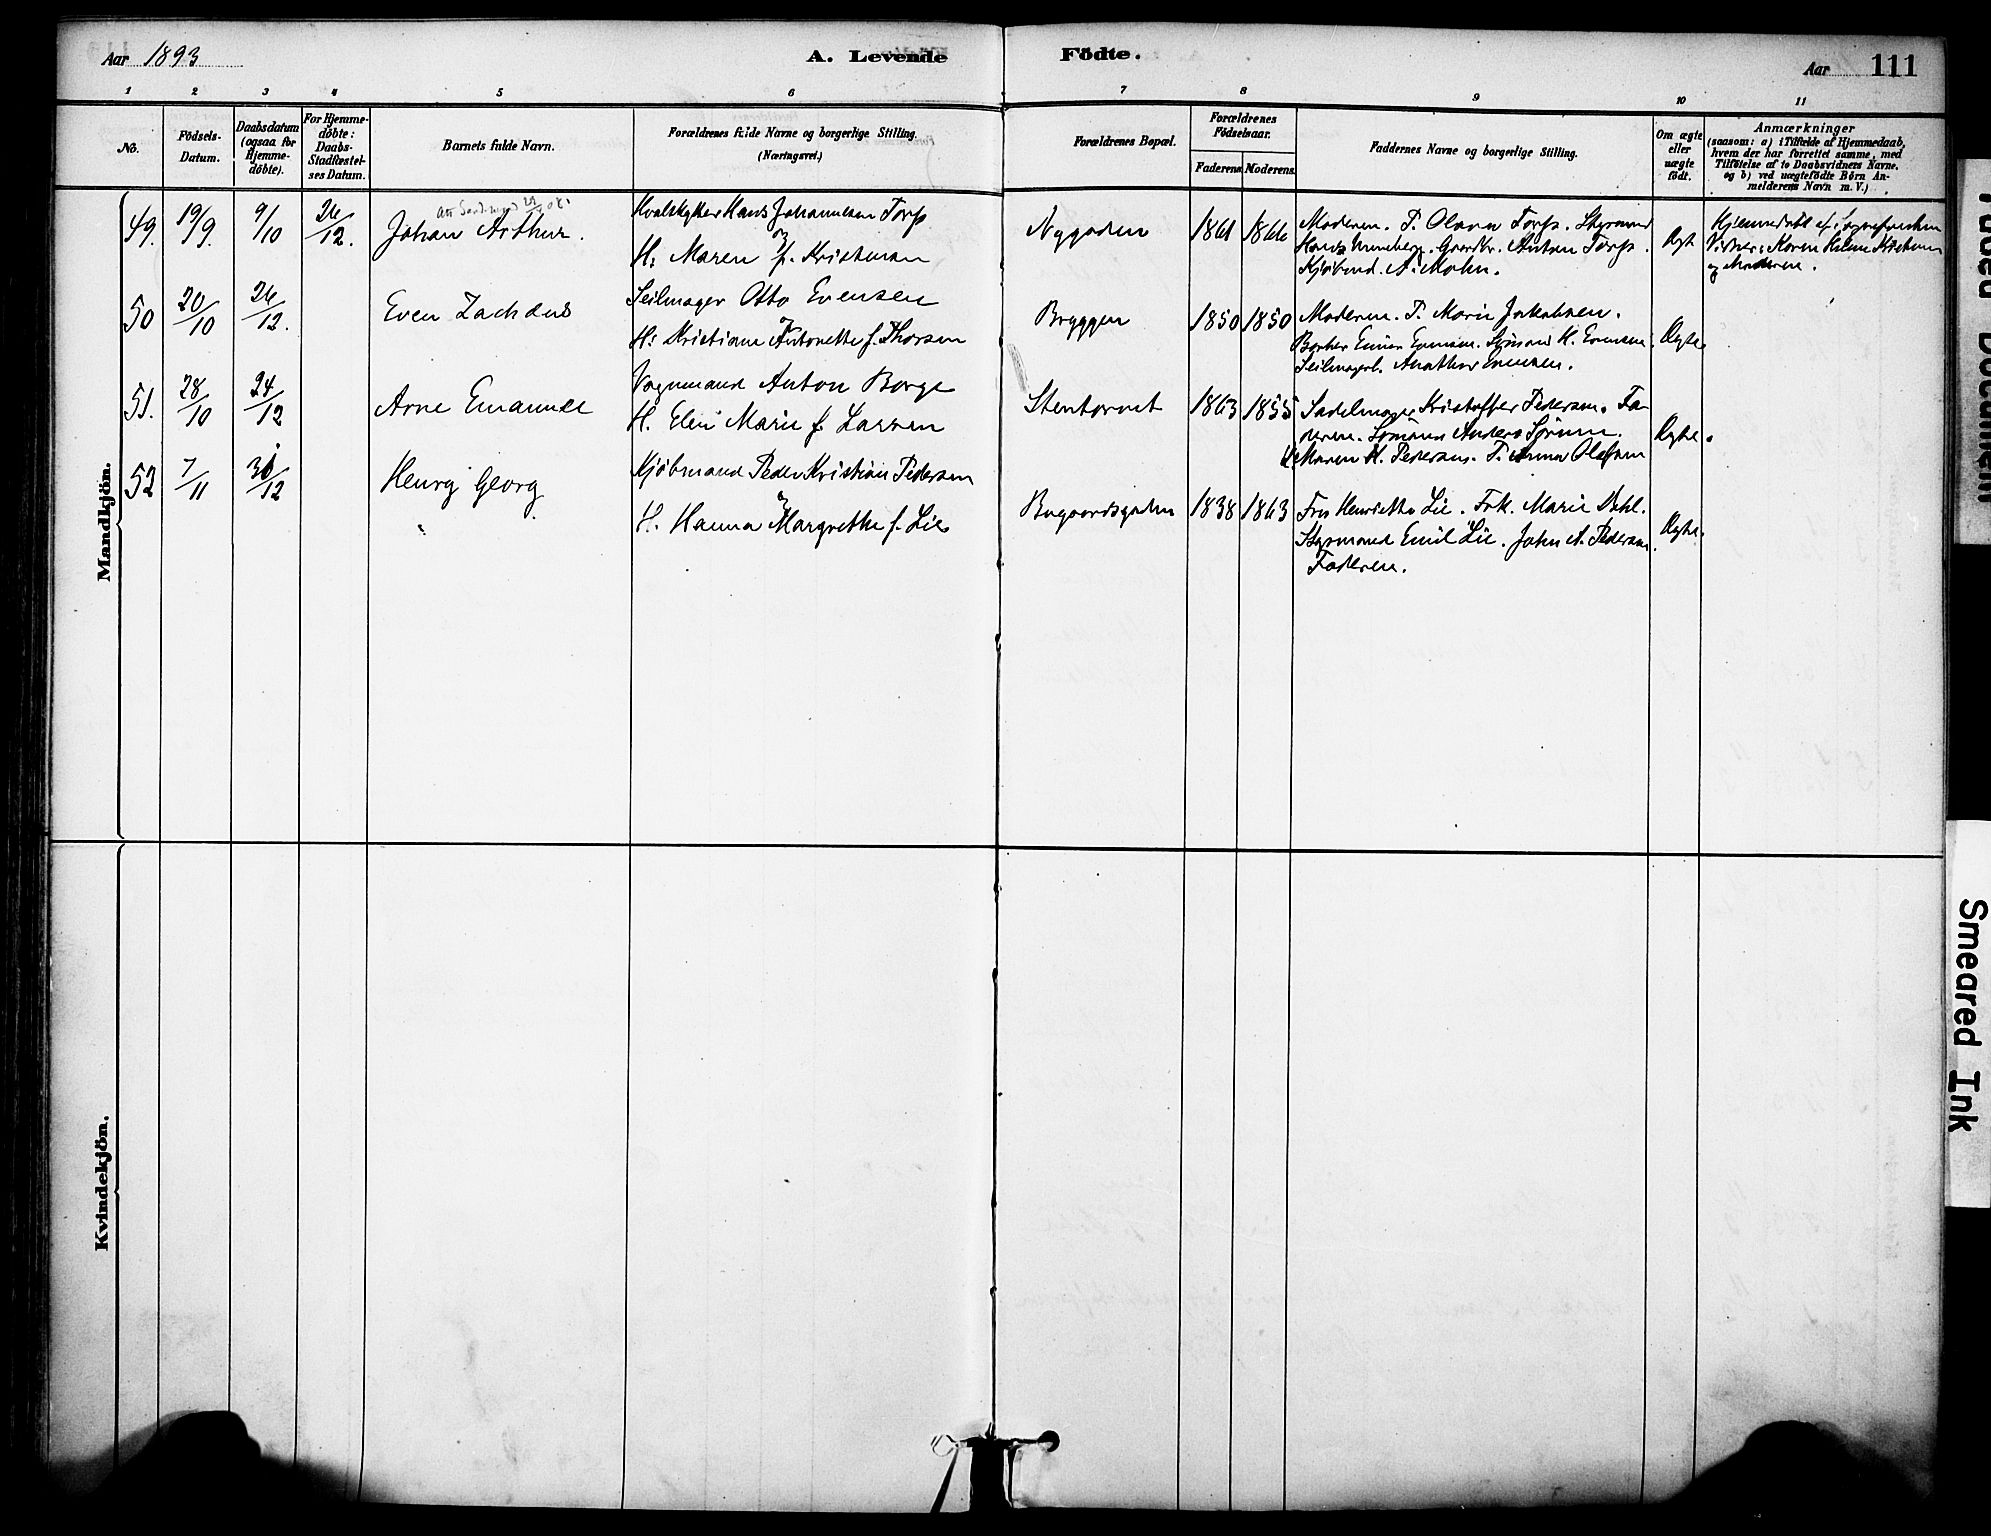 Aar 1893
A. Levende
Födte.
Aar
111
1 2 3 4 5 6 7 8 9 10 11
No.
Födsels-
Datum.
Daabsdatum
(ogsaa for
Hjemme-
döbte).
For Hjemme-
döbte:
Daabs-
Stadfæstel-
ses Datum.
Barnets fulde Navn.
Forældrenes fulde Navne og borgerlige Stilling.
(Næringsvei.)
Forældrenes Bopæl.
Forældrenes
Födselsaar.
Faderens
Moderens
Faddernes Navne og borgerlige Stilling.
Om ægte
eller
uægte
födt.
Anmærkninger
(saasom: a) i Tilfælde af Hjemmedaab,
hvem der har forrettet samme, med
Tilföielse af to Daabsvidners Navne.
og b) ved uægtefödte Börn An-
melderens Navn m. V.)
Mandkjön.
49. 19/9. 9/10 26/12.
Johan Arthur.
Hvalskytter Hans Johannesen Torp
H. Maren f. Kristensen
Nygaden
1861 1866
Moderen. P. Olava Torp. Styrmand
Hans Unneberg. Gaardbr. Anton Torp.
Kjöbmd. A. Mohn.
Ægt
Vidner: Karen Helene
og Moderen.
50 20/10 26/12.
Even Zachæus
Seilmager Otto Evensen
H: Kristiane Antonette f. Thorsen
Bryggen
1850 1850
Moderen. P. Marie Jakobsen.
Evensen. Sömand H. Evensen.
Seilmagerl. Evensen.
Ægte.
51. 28/10 24/12
Arne Emanuel
Vognmand Anton Borge
H. Elen Marie f. Larsen
Stentorvet
1863 1855
Sadelmager Kristoffer Pedersen. Fa-
deren. Sömand Anders Sörensen.
Maren H. Pedersen. P. Anna Olafsen
Ægte.
52 7/11 31/12
Henry Georg
Kjöbmand Peder Kristian Pedersen
H. Hanna Margrethe f. Lie
Bugaardsgaden
1838 1863
Fru Henriette Lie. Frk. Marie Dahl.
Styrmand Emil Lie. John A. Pedersen.
Faderen.
Ægte.
Kvindekjön.
Faded Document
Smeared Ink